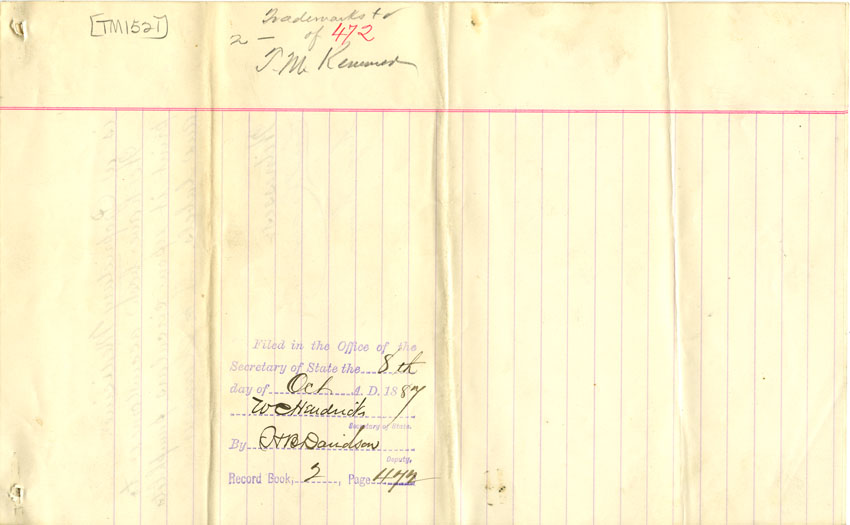 [TM1521]
Trademarks &c
2 — of 472
T. M.
Filed in the Office of the
Secretary of State the 8th
day of Oct A. D. 1887
W C Hendricks
Secretary of State.
By H B Davidson
Deputy.
Record Book, 2, Page 472